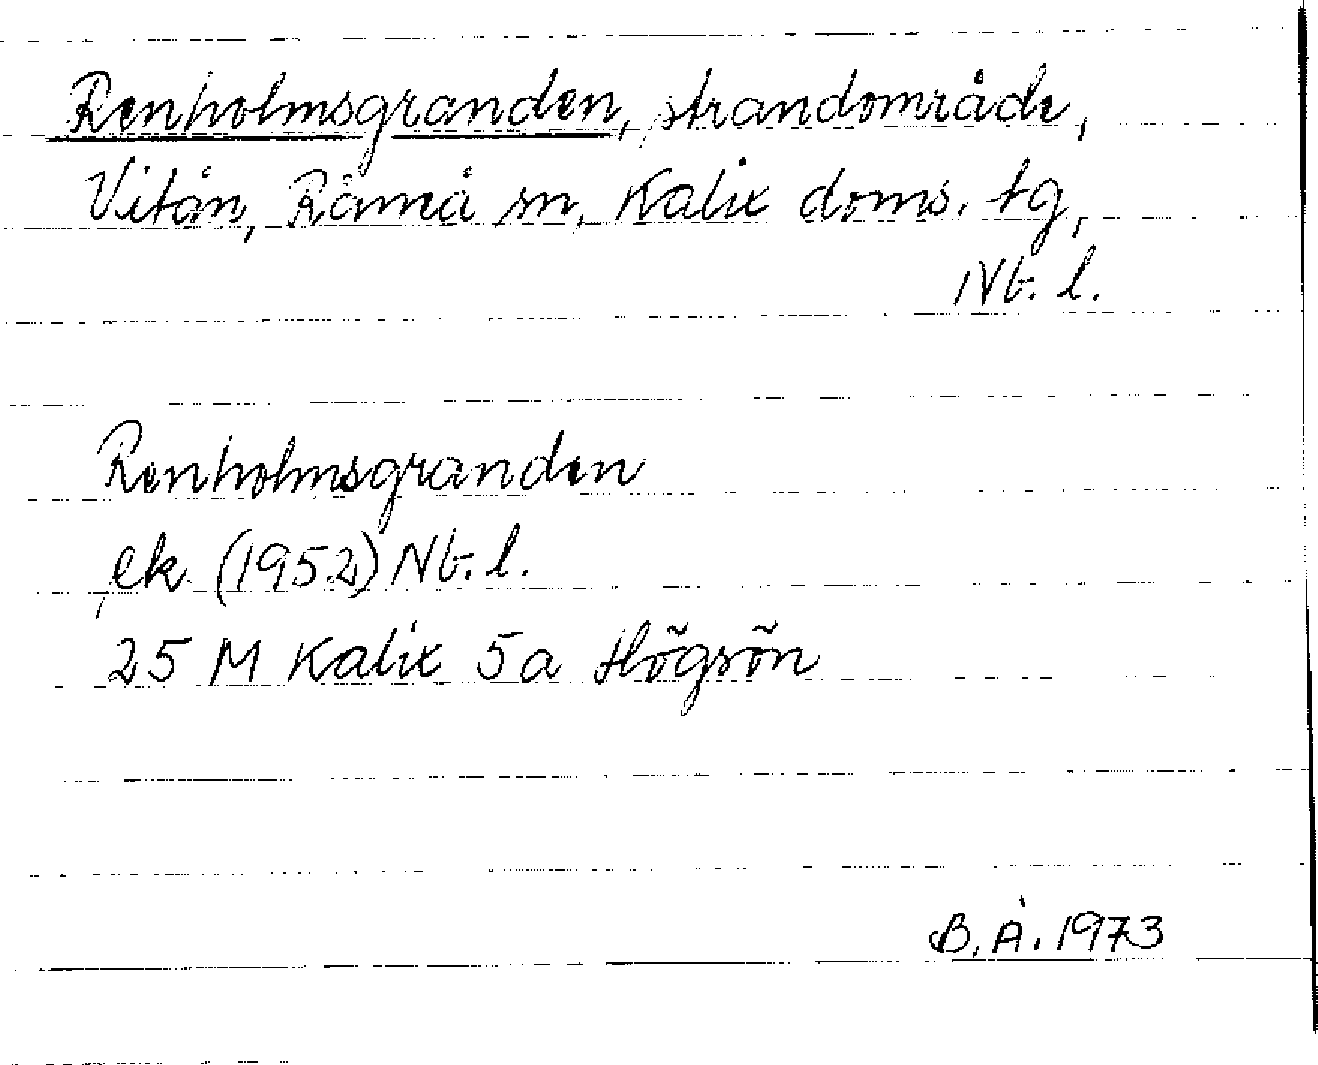 Renholmsgranden, strandområde,
Vitån, Råneå sn, Kalix doms. tg,
Nb. l.
Renholmsgranden
ek (1952) Nb. l.
25 M Kalix 5a Högsön
B. Å. 1973